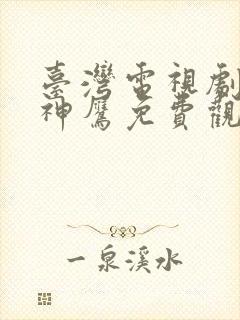 臺灣電視劇
神鷹免費觀
一泉溪水